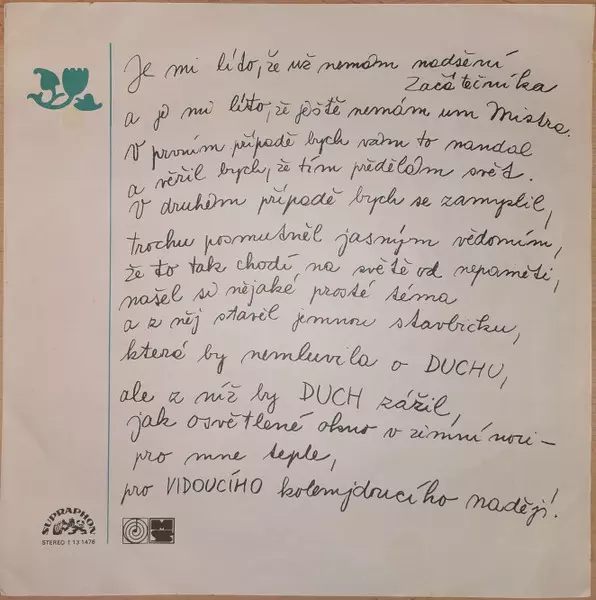 Je mi líto, že už nemám nadšení
Začátečníka
a je mi líto, že ještě nemám um Mistra.
V prvním případě bych vám to nandal
a věřil bych, že tím předělám svět.
V druhém případě bych se zamyslil,
trochu posmutněl jasným vědomím,
že to tak chodí na světě od nepaměti,
našel si nějaké prosté téma
a z něj stavěl jemnou stavbičku,
která by nemluvila o DUCHU,
ale z níž by DUCH zářil,
jak osvětlené okno v zimní noci –
pro mne teple,
pro VIDOUCÍHO kolemjdoucího nadějí!
SUPRAPHON
STEREO 1 13 1476